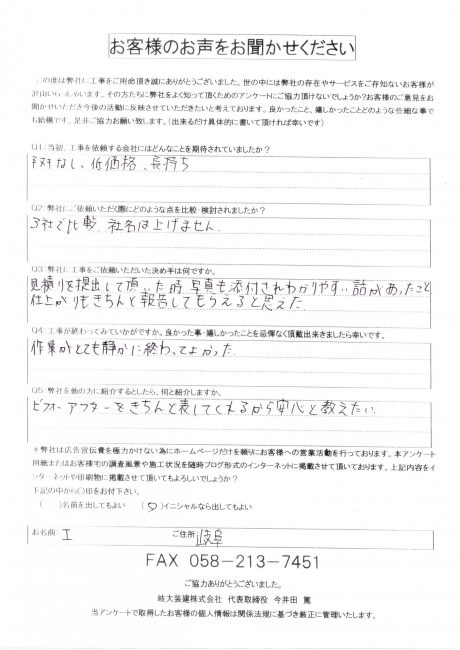 お客様のお声をお聞かせください
この度は弊社に工事をご用命頂き誠にありがとうございます。世の中には弊社の存在やサービスをご存知ないお客様が
沢山いらっしゃいます。その方たちに弊社をよく知って頂くためのアンケートにご協力頂けないでしょうか?お客様のご意見をお
聞かせいただき今後の活動に反映させていただきたいと考えております。良かったこと、嬉しかったことどのような些細な事で
も結構です。是非ご協力お願い致します。(出来るだけ具体的に書いて頂ければ幸いです)
Q1:当初、工事を依頼する会社にはどんなことを期待されていましたか?
なし、低価格、長持ち
Q2:弊社にご依頼いただく際にどのような点を比較・検討されましたか?
3社で比較 社名は上げません
Q3:弊社に工事をご依頼いただいた決め手は何ですか。
見積りを提出して頂いた時、写真も添付されわかりやすい話があったこと
仕上がりもきちんと報告してもらえると思えた
Q4:工事が終わってみていかがですか。良かった事・嬉しかったことを忌憚なく頂戴出来ましたら幸いです。
作業がとても静かに終わってよかった
Q5:弊社を他の方に紹介するとしたら、何と紹介しますか。
ビフォーアフターをきちんと表してくれるから安心と教えたい
*弊社は広告宣伝費を極力かけない為にホームページだけを頼りにお客様への営業活動を行っております。本アンケート
用紙またはお客様宅の調査風景や施工状況を随時ブログ形式のインターネットに掲載させて頂いております。上記内容をイ
ンターネットや印刷物に掲載させて頂いてもよろしいでしょうか?
下記の中から〇印をお付下さい。
( )名前を出してもよい (〇)イニシャルなら出してもよい
お名前: I ご住所: 岐阜
FAX 058-213-7451
ご協力ありがとうございました。
岐大装建株式会社 代表取締役 今井田 篤
当アンケートで取得したお客様の個人情報は関係法規に基づき厳正に管理いたします。